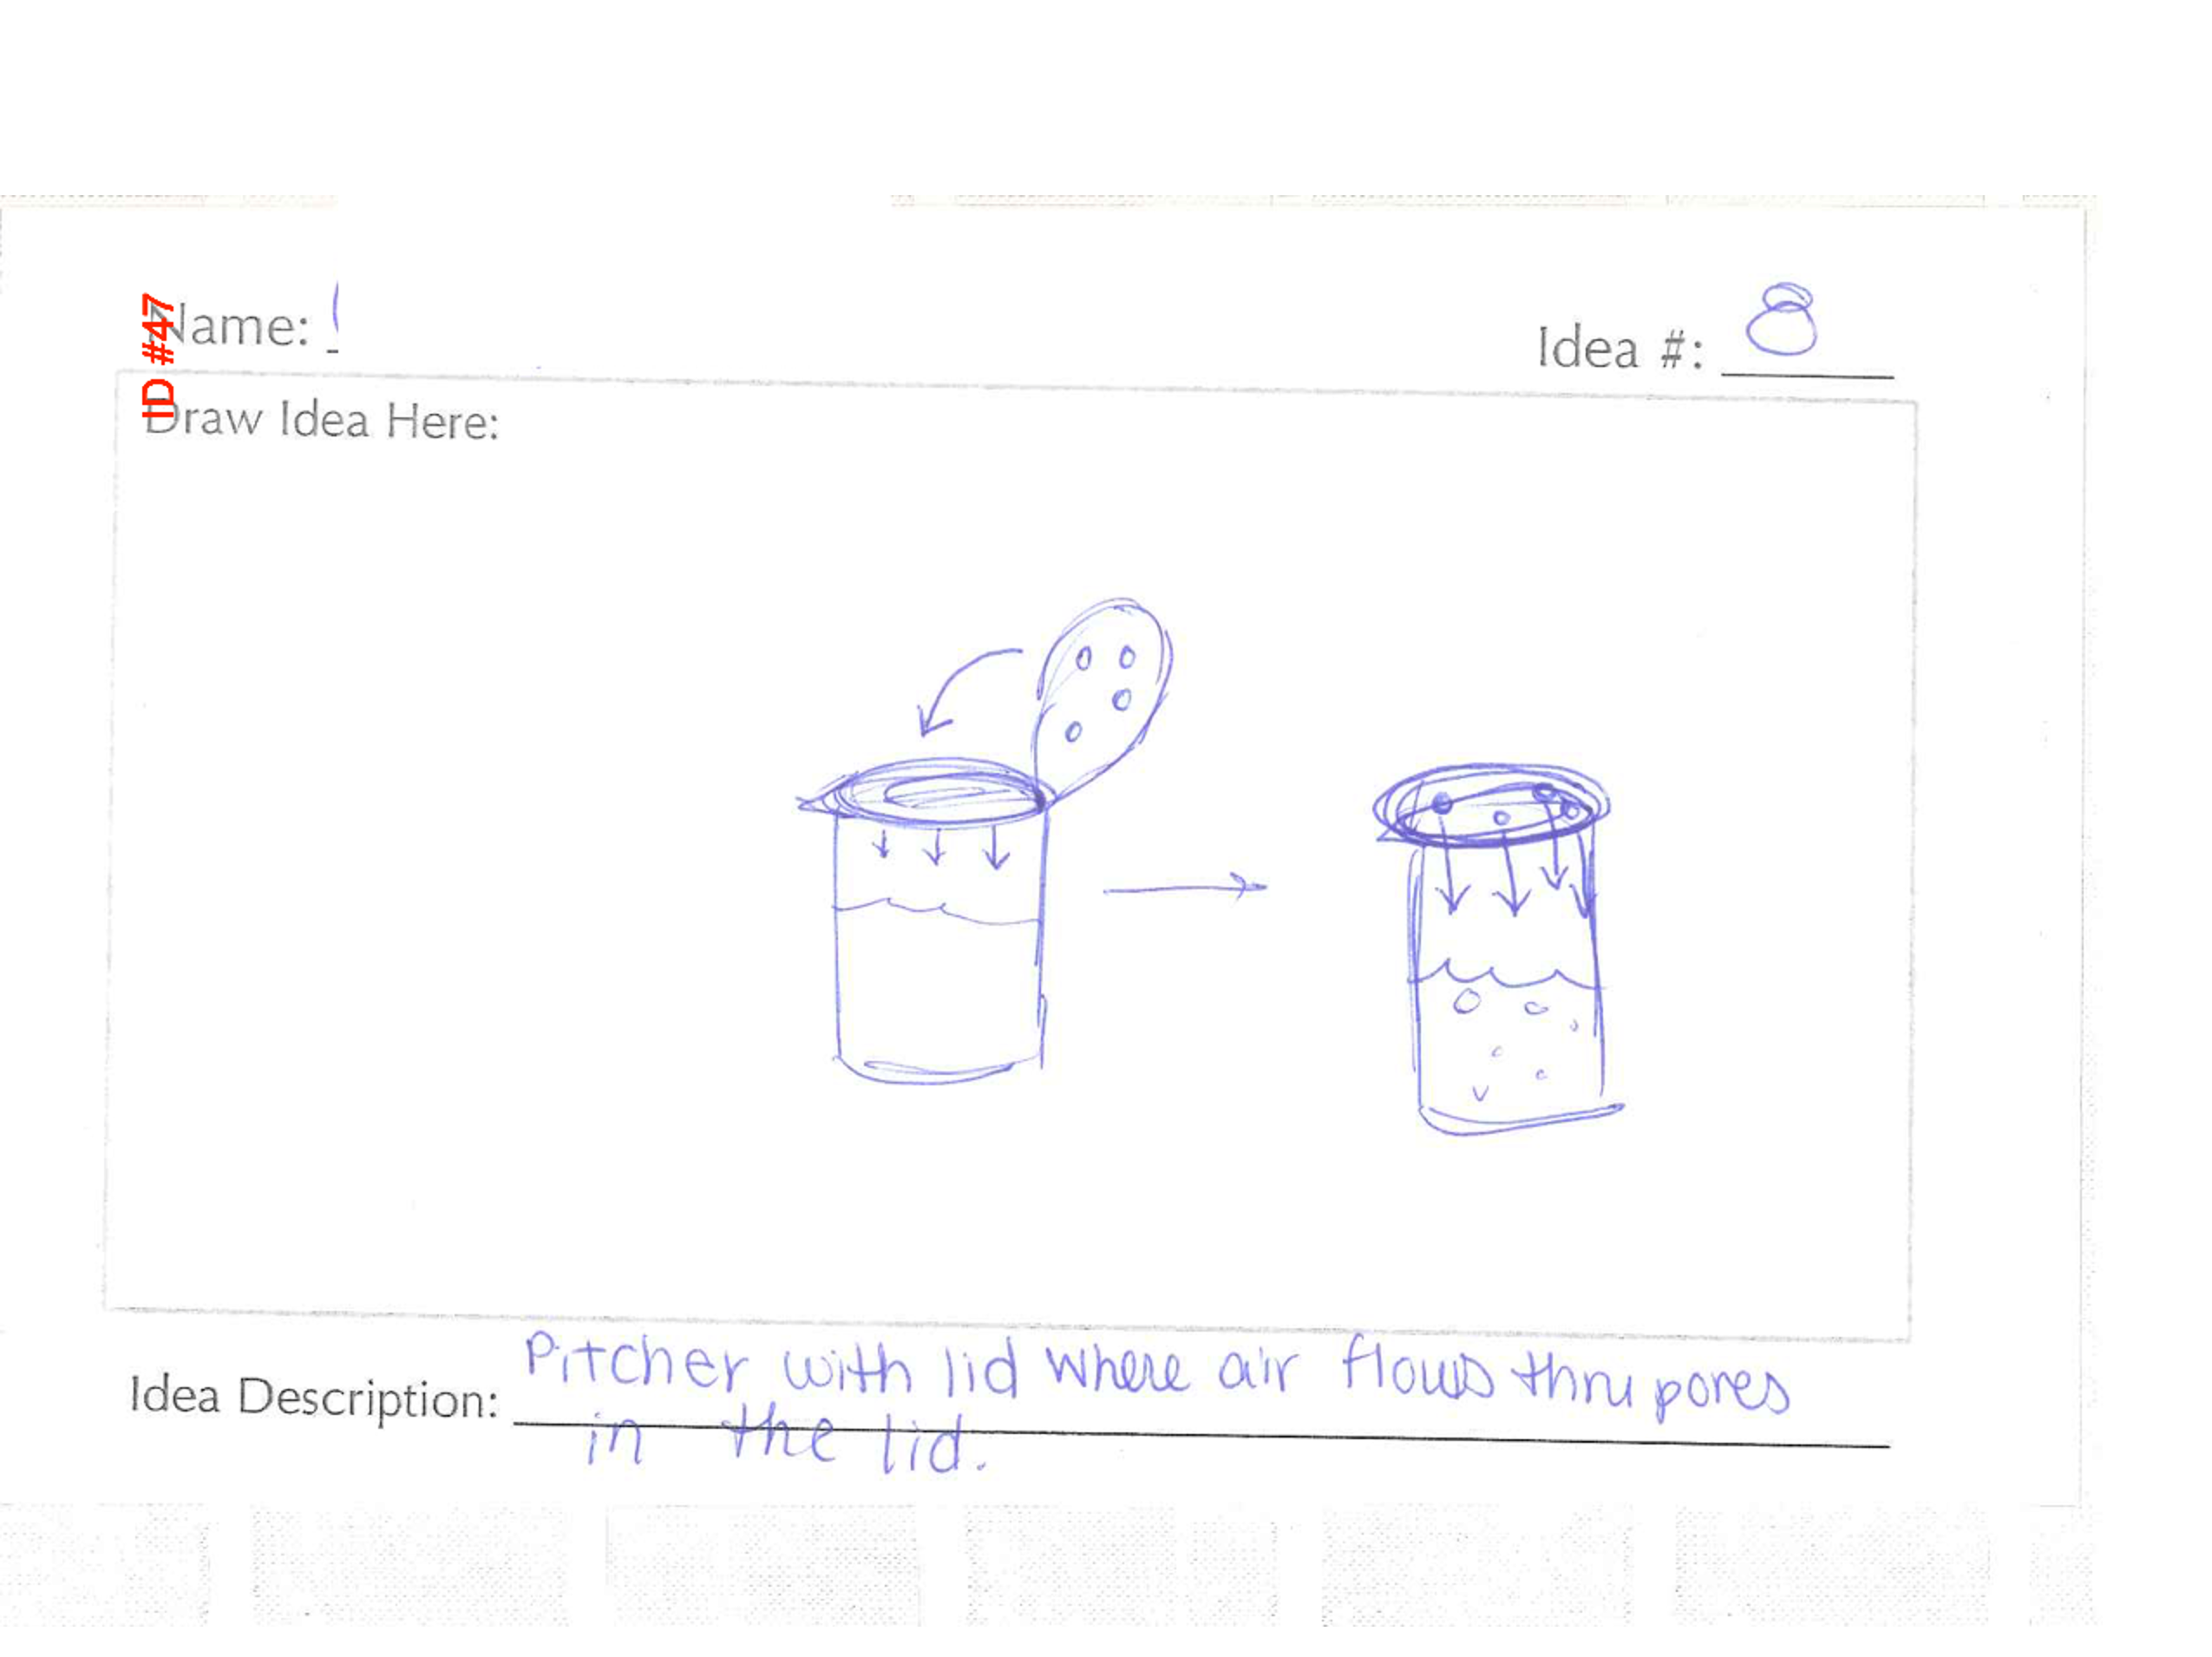 ID #47
Name:
Idea #: 8
Draw Idea Here:
Idea Description: Pitcher with lid where air flows thru pores
in the lid.